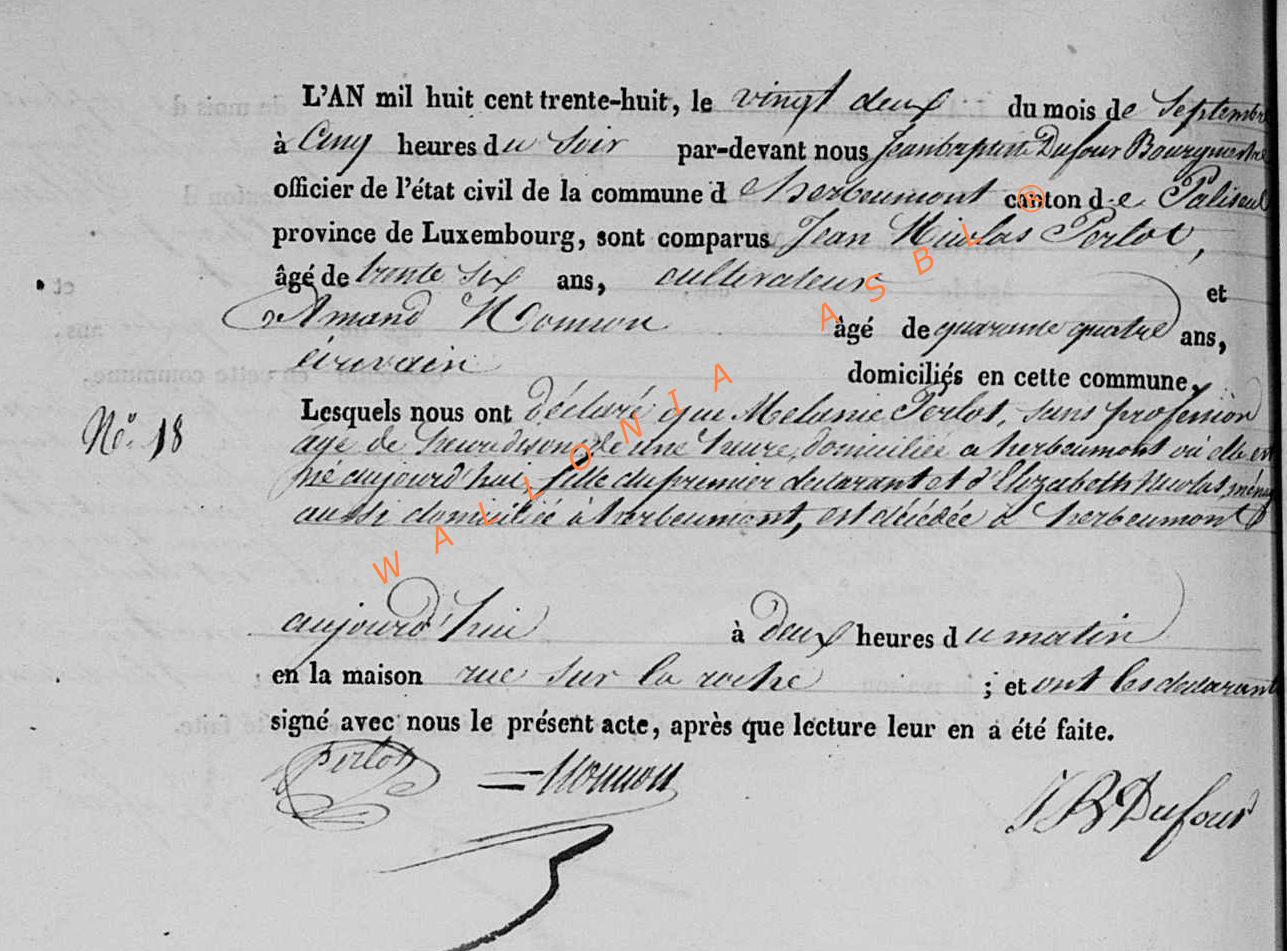 L'AN mil huit cent trente-huit, le vingt deux du mois de Septembre
à Cinq heures du Soir par-devant nous Jeanbaptiste Dufour Bourguestre
officier de l'état civil de la commune d herbeumont canton de Paliseul
province de Luxembourg, sont comparus Jean Nicolas Perlot,
âgé de trente Six ans, cultivateur et
Amand Nomion âgé de quarante quatre ans,
écrivain domiciliés en cette commune,
Lesquels nous ont déclaré que Melanie Perlot, sans profession
âgé de une heure, domiciliée a herbeumont où elle est
né aujourd'hui, fille du premier declarant et d'Elizabeth Nicolas, ménag
aussi domiciliée à herbeumont, est décédée à herbeumont
N°. 18
aujourd'hui à deux heures du matin
en la maison rue sur la roche ; et ont les declarant
signé avec nous le présent acte, après que lecture leur en a été faite.
Perlot Nomion JB Dufour
WALLONIA ASBL ®